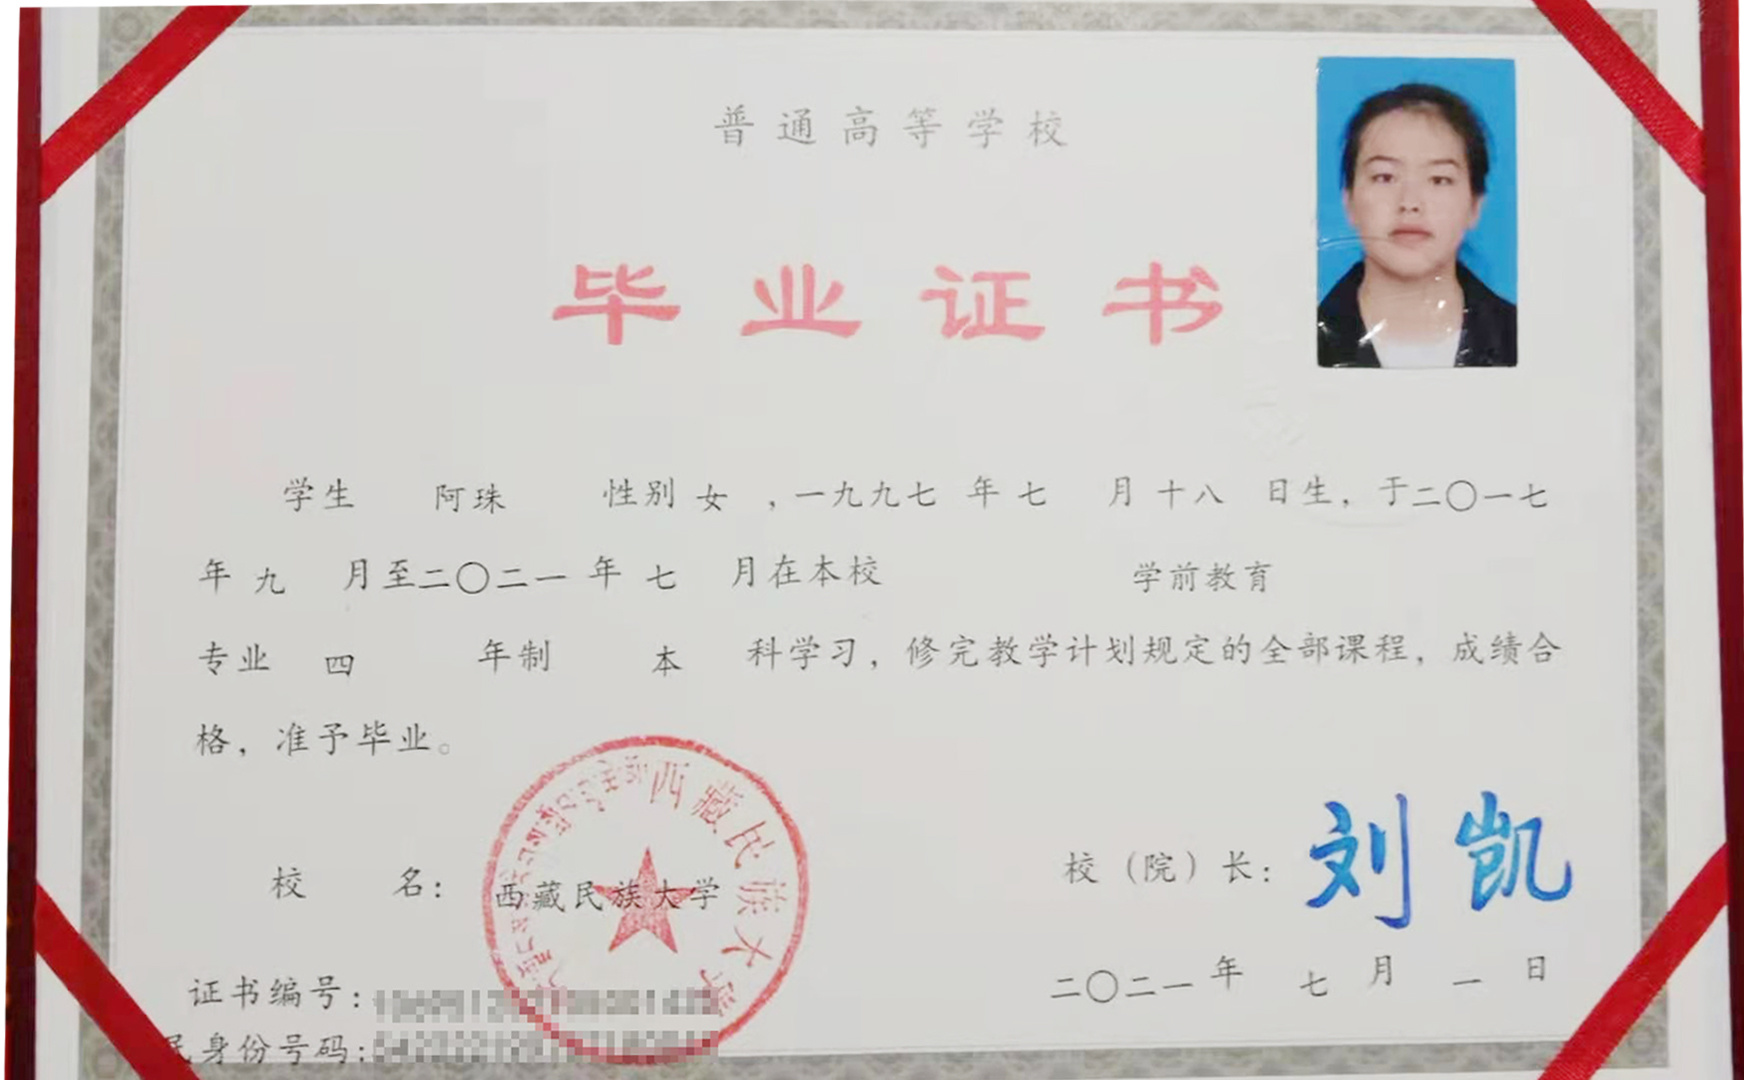 普通高等学校
毕业证书
学生 阿珠 性别 女 ，一九九七 年 七 月 十八 日生，于二〇一七
年 九 月至二〇二一 年 七 月在本校 学前教育
专业 四 年制 本 科学习，修完教学计划规定的全部课程，成绩合
格，准予毕业。
西藏民族大学
校 名： 西藏民族大学
校（院）长： 刘凯
二〇二一 年 七 月 一 日
证书编号：
民身份号码：